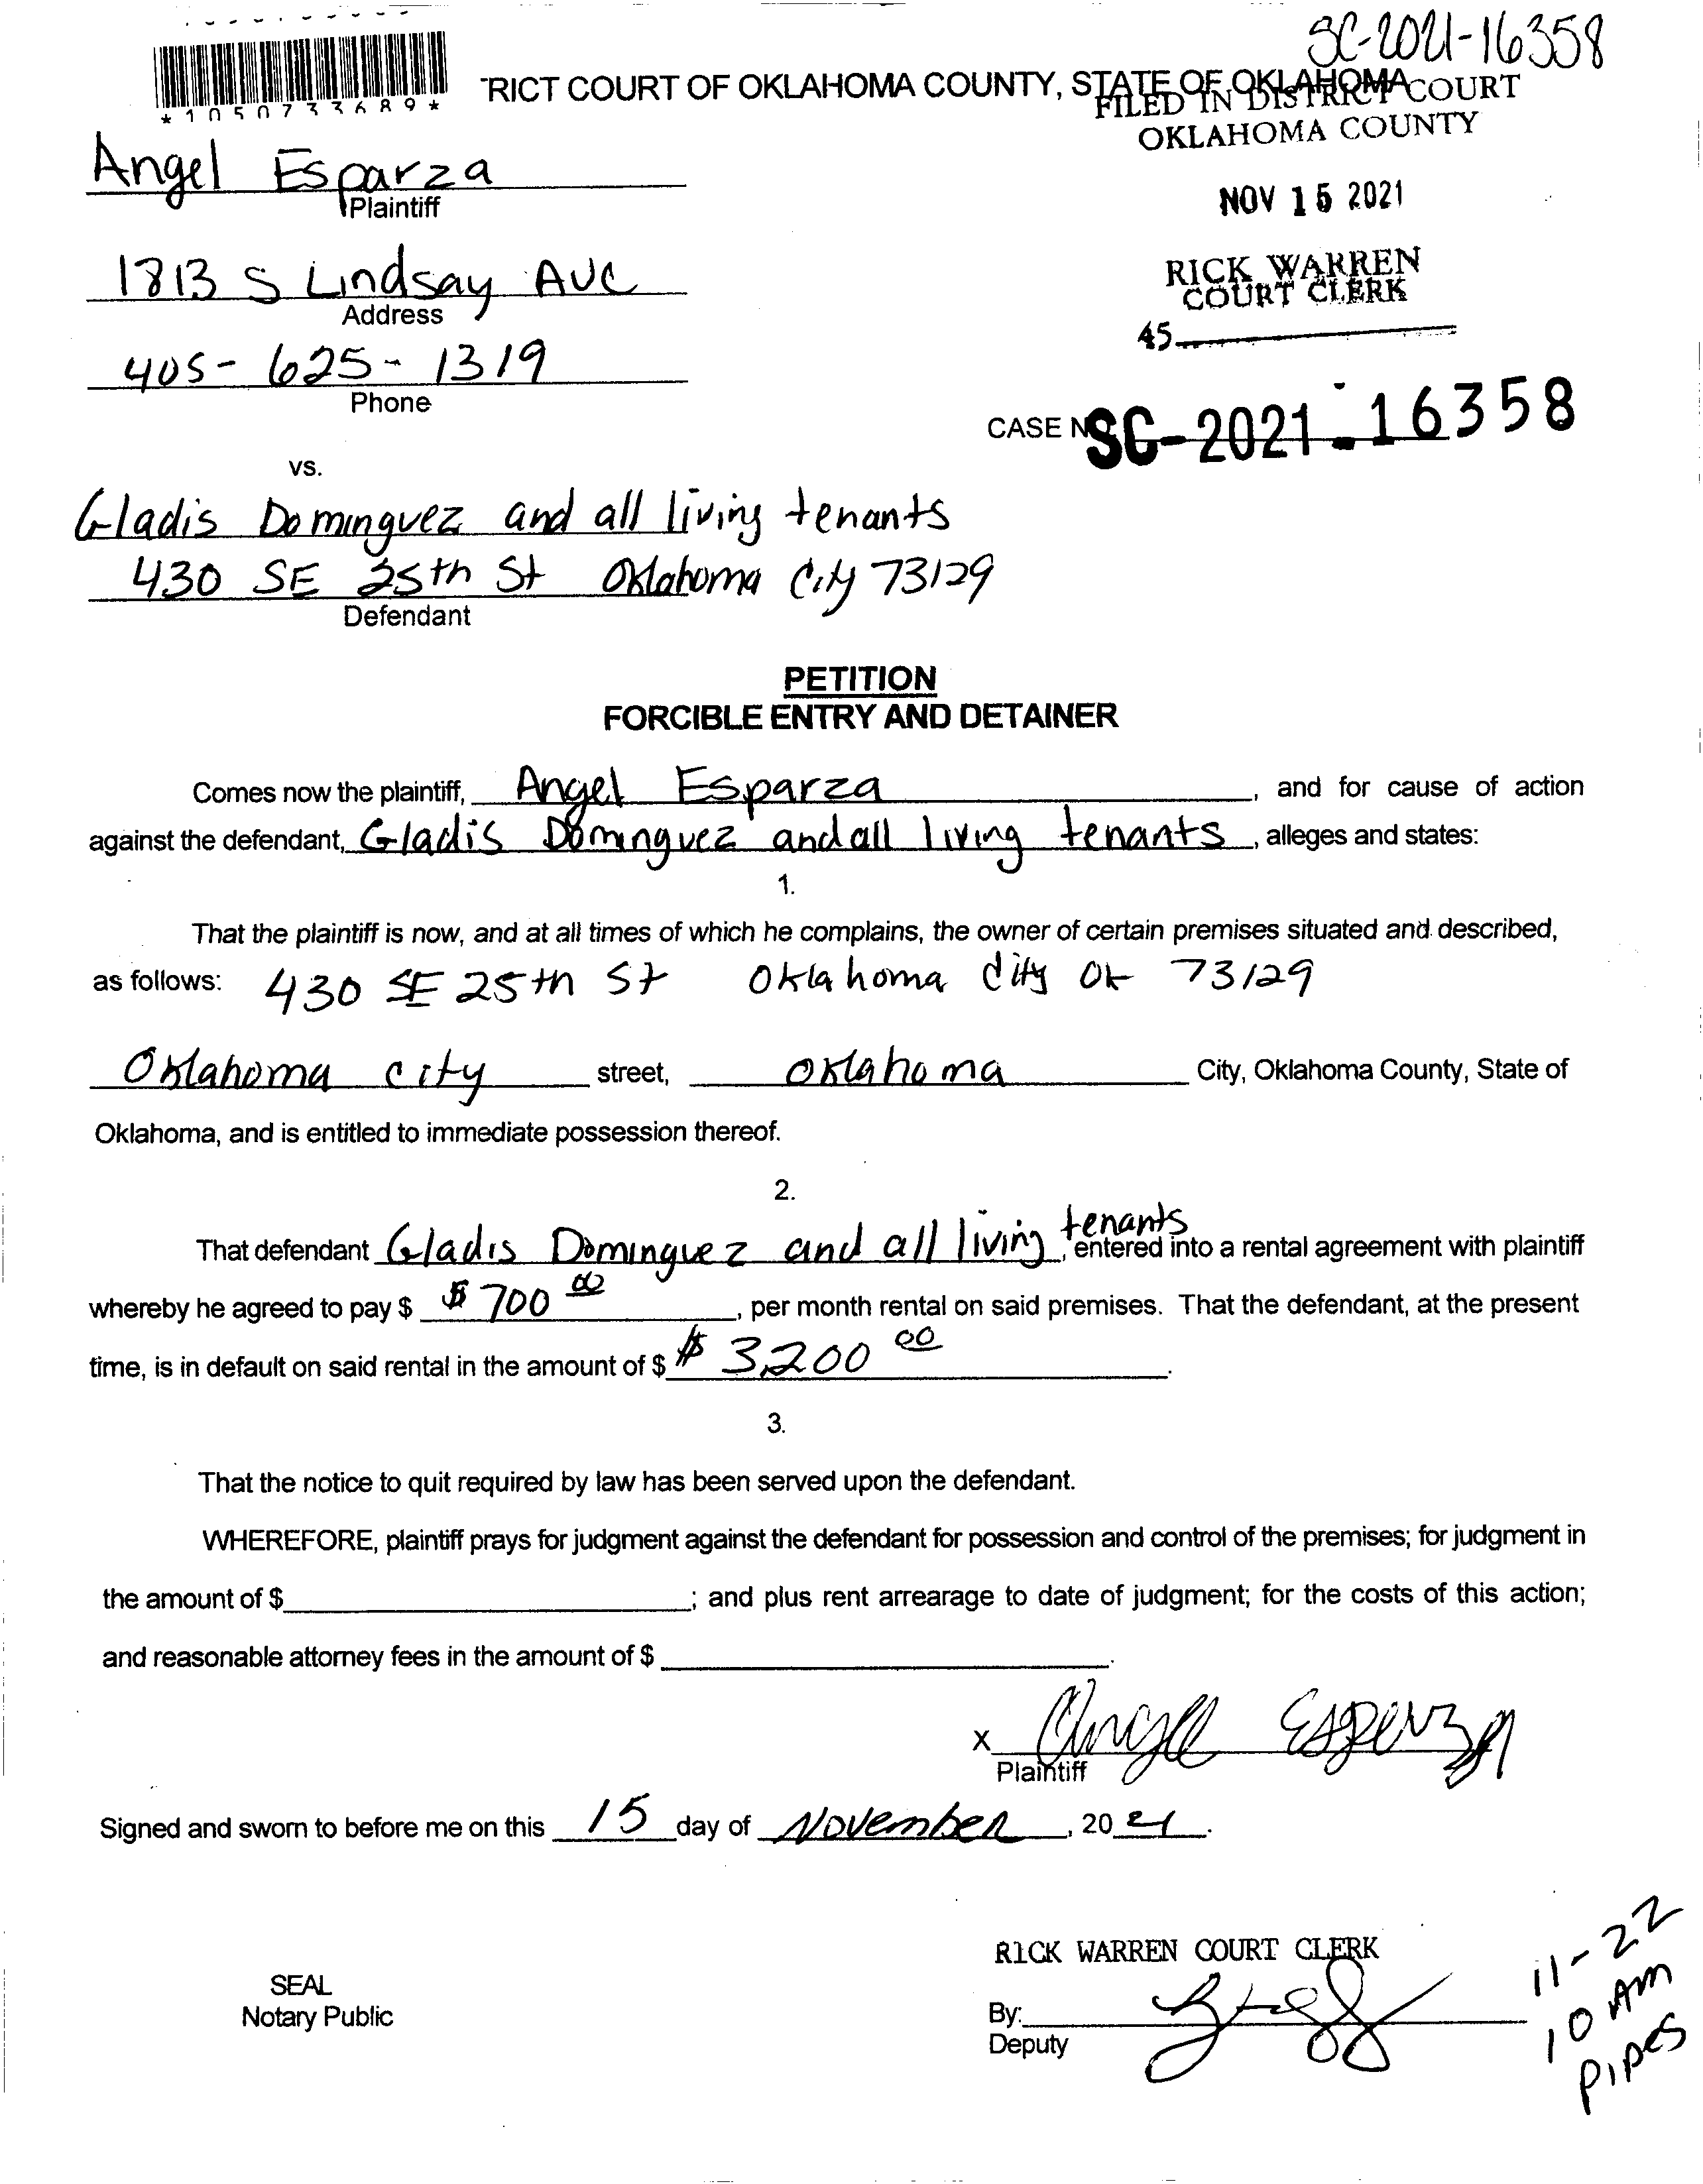 SC-2021-16358
*1050733689*
TRICT COURT OF OKLAHOMA COUNTY, STATE OF OKLAHOMA
FILED IN DISTRICT COURT
OKLAHOMA COUNTY
Angel Esparza
Plaintiff
NOV 15 2021
1813 S Lindsay Ave
Address
RICK WARREN
COURT CLERK
45
405-625-1319
Phone
CASE NO. SC-2021-16358
vs.
Gladis Dominguez and all living tenants
430 SE 25th St Oklahoma City 73129
Defendant
PETITION
FORCIBLE ENTRY AND DETAINER
Comes now the plaintiff, Angel Esparza, and for cause of action
against the defendant, Gladis Dominguez and all living tenants, alleges and states:
1.
That the plaintiff is now, and at all times of which he complains, the owner of certain premises situated and described,
as follows: 430 SE 25th St Oklahoma City OK 73129
Oklahoma city street, Oklahoma City, Oklahoma County, State of
Oklahoma, and is entitled to immediate possession thereof.
2.
That defendant Gladis Dominguez and all living tenants, entered into a rental agreement with plaintiff
whereby he agreed to pay $ $700 00, per month rental on said premises. That the defendant, at the present
time, is in default on said rental in the amount of $ $3,200 00.
3.
That the notice to quit required by law has been served upon the defendant.
WHEREFORE, plaintiff prays for judgment against the defendant for possession and control of the premises; for judgment in
the amount of $ ; and plus rent arrearage to date of judgment; for the costs of this action;
and reasonable attorney fees in the amount of $ .
x Angel Esparza
Plaintiff
Signed and sworn to before me on this 15 day of November, 2021.
RICK WARREN COURT CLERK
SEAL
Notary Public
By:
Deputy
11-22
10 AM
Pipes